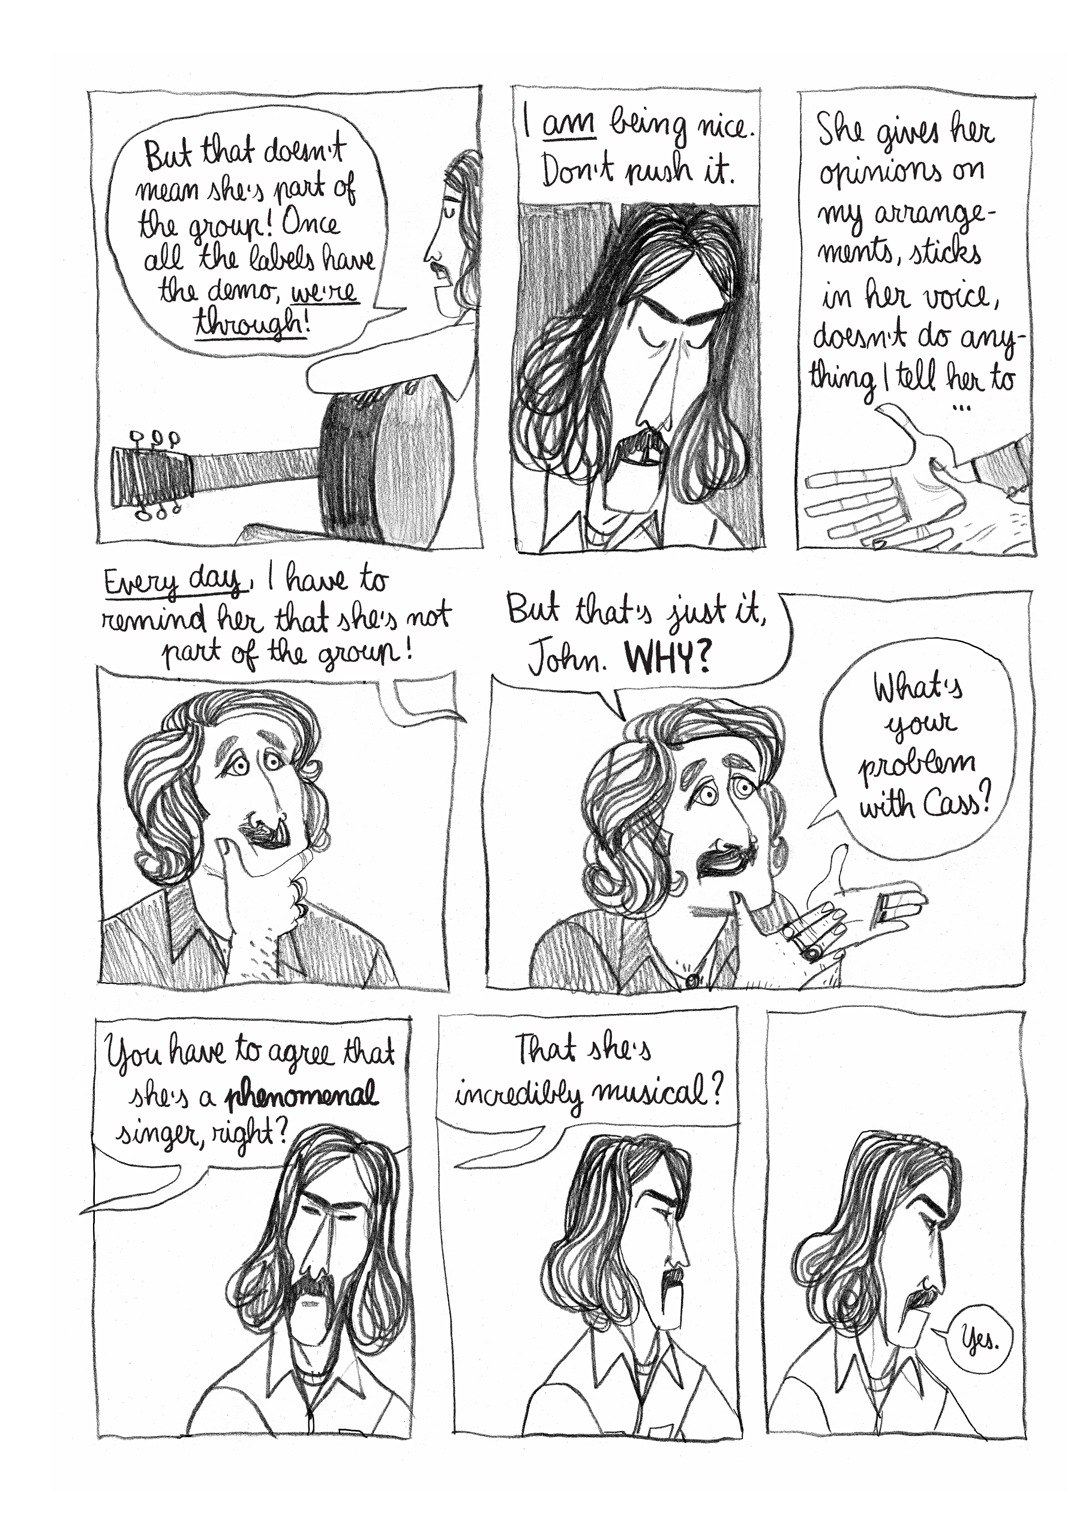 But that doesn't
mean she's part of
the group! Once
all the labels have
the demo, we're
through!
I am being nice.
Don't push it.
She gives her
opinions on
my arrange-
ments, sticks
in her voice,
doesn't do any-
thing I tell her to
...
Every day, I have to
remind her that she's not
part of the group!
But that's just it,
John. WHY?
What's
your
problem
with Cass?
You have to agree that
she's a phenomenal
singer, right?
That she's
incredibly musical?
Yes.